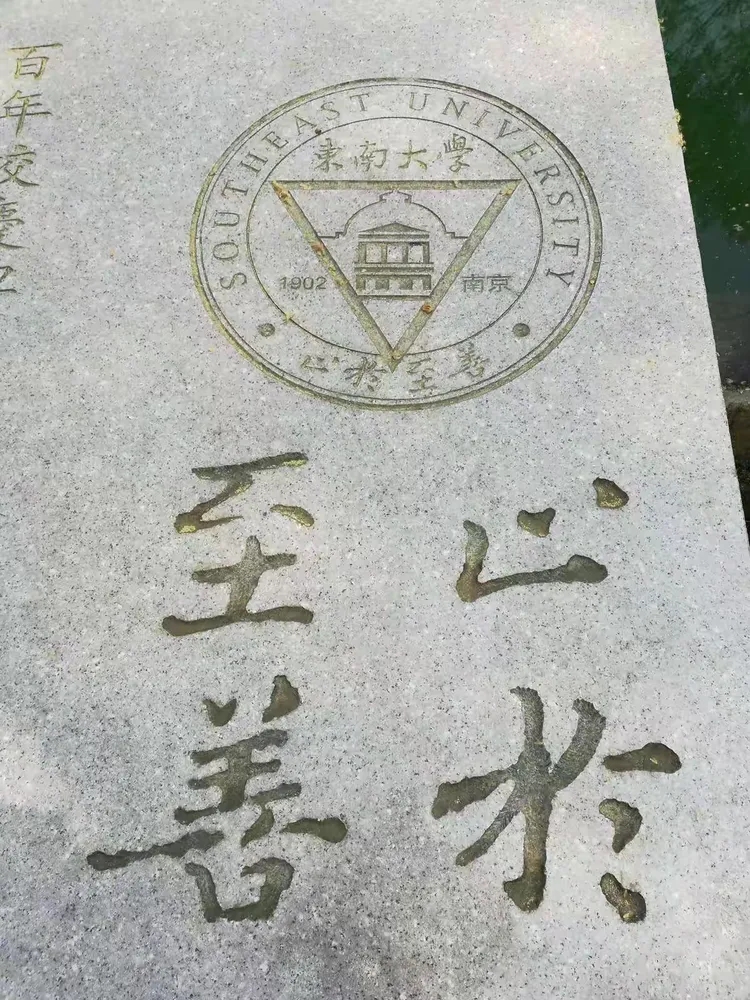 SOUTHEAST UNIVERSITY
東南大學
1902 南京
止於至善
止於
至善
百年校慶